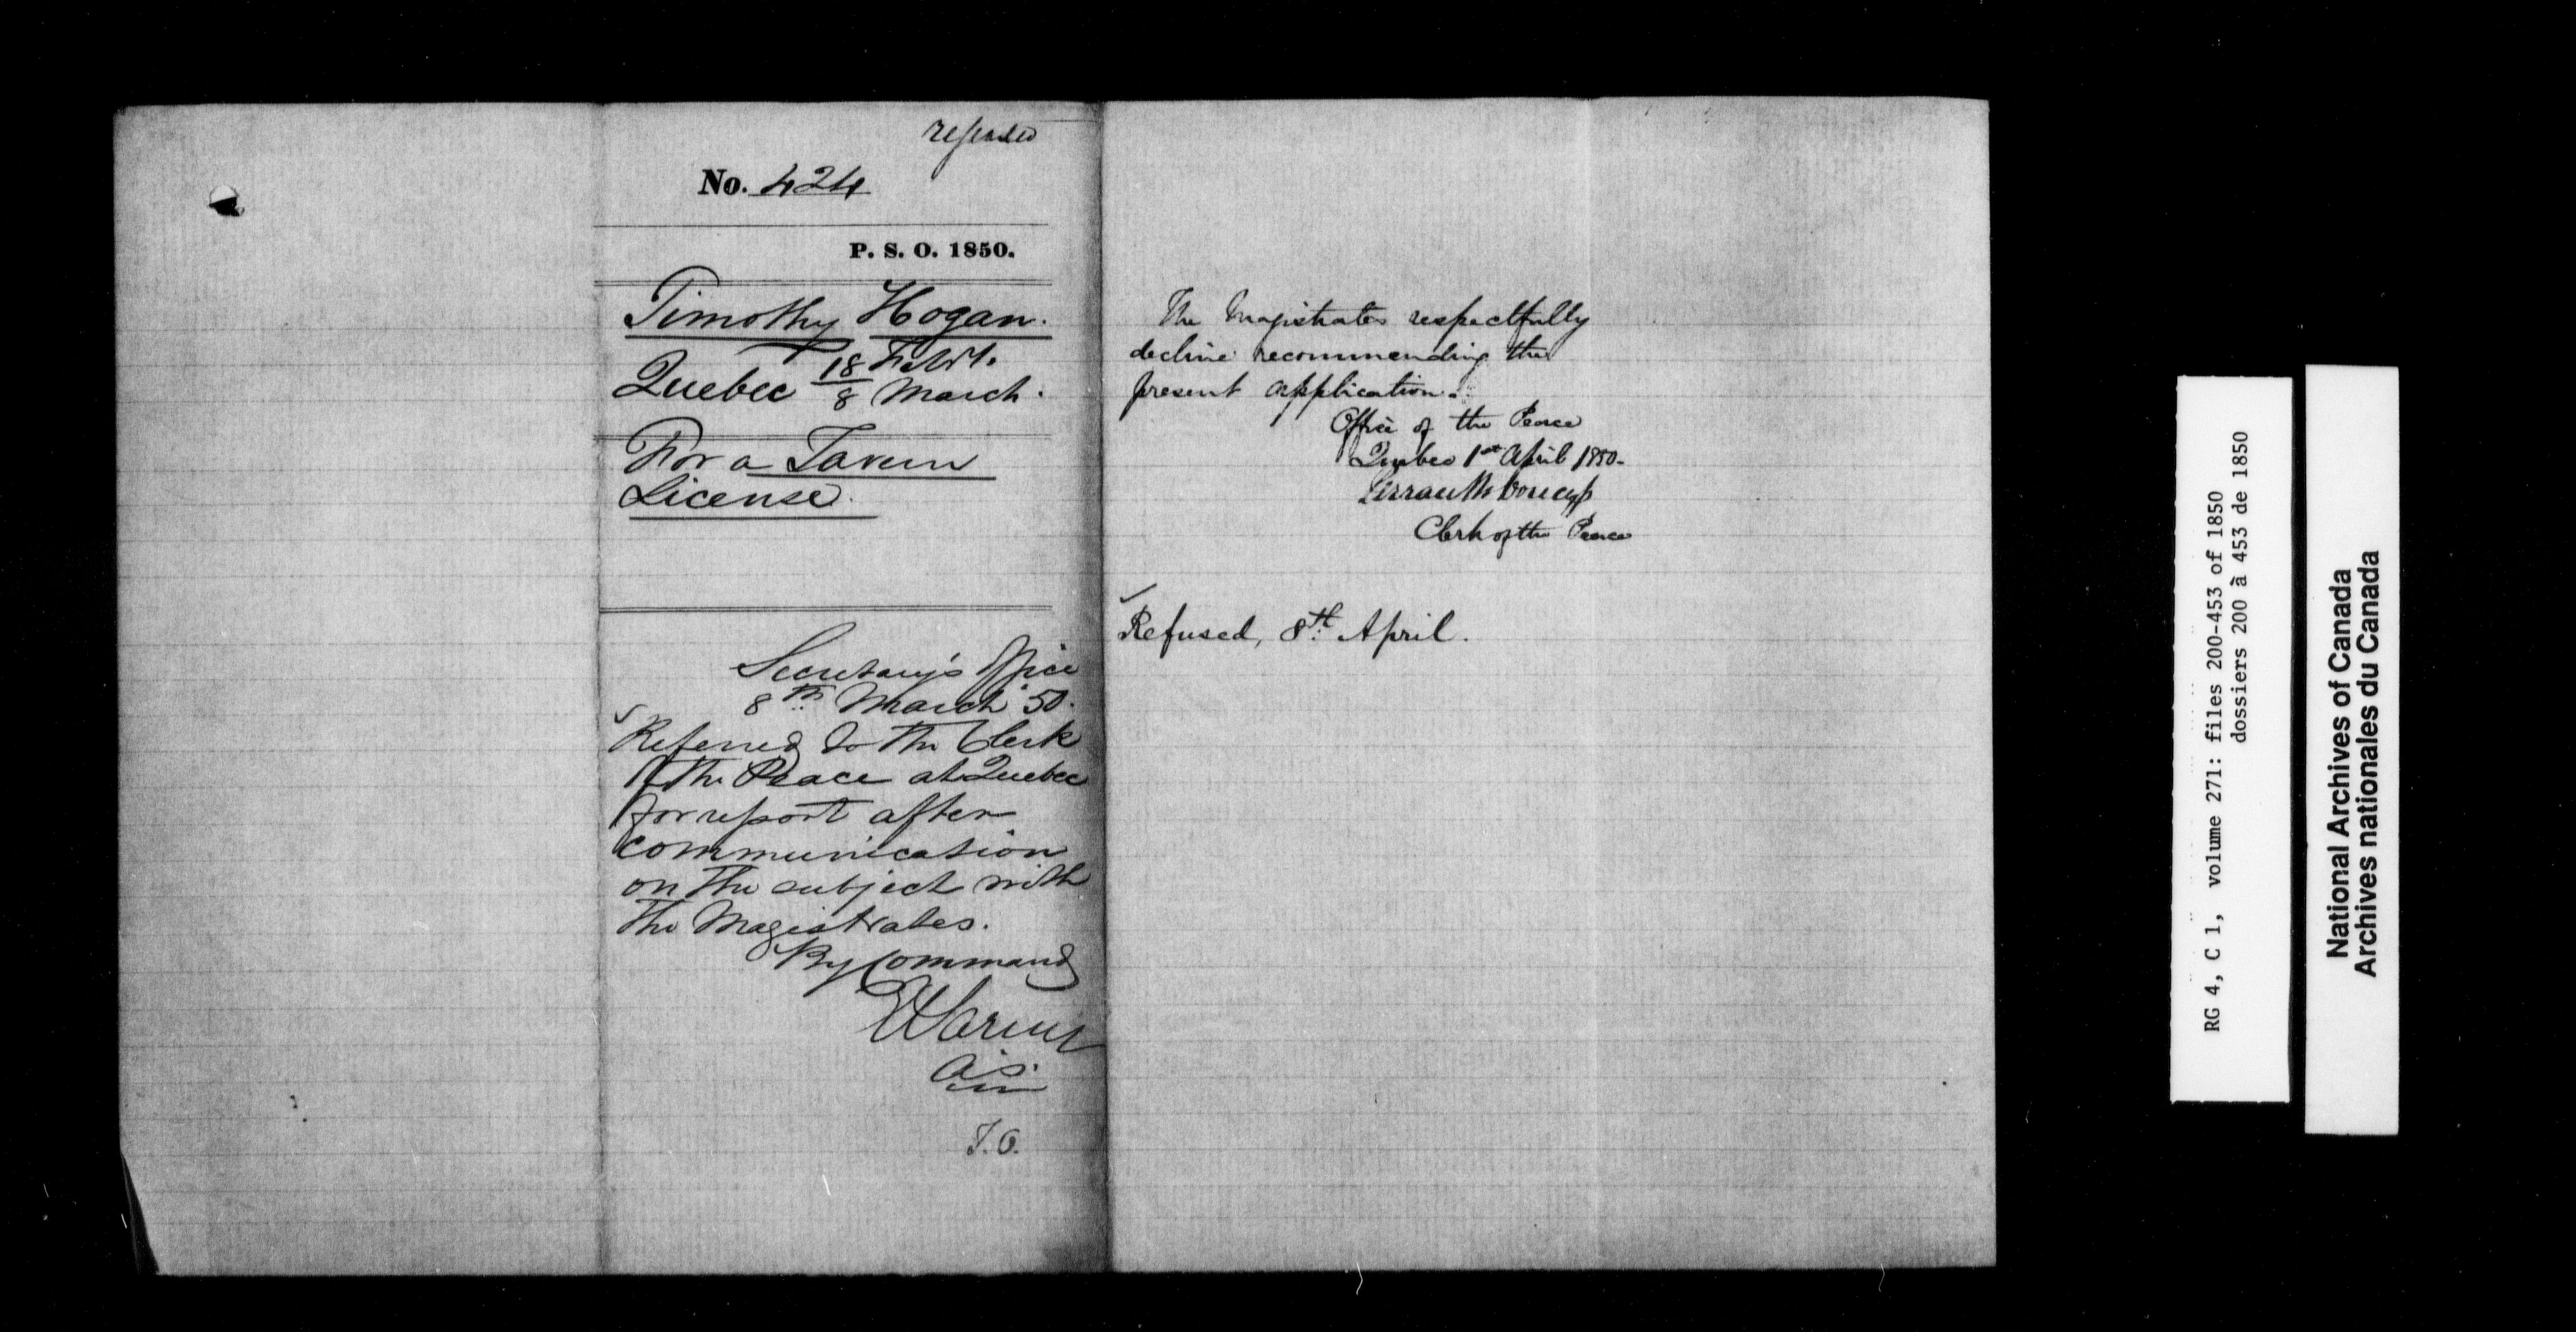 refused
No. 424
P. S. O. 1850.
Timothy Hogan.
Quebec 18 Feb'y.
8 March.
For a Tavern
License.
Secretary's Office
8th March '50.
Referred to the Clerk
of the Peace at Quebec
for report after
communication
on the subject with
the Magistrates.
By Command
A.S.
T.O.
The Magistrates respectfully
decline recommending the
present application.
Office of the Peace
Quebec 1st April 1850.
Clerk of the Peace
Refused, 8th April.
RG 4, C 1, volume 271: files 200-453 of 1850
dossiers 200 à 453 de 1850
National Archives of Canada
Archives nationales du Canada